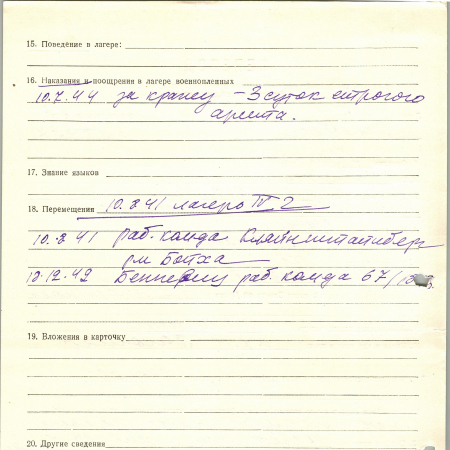 15. Поведение в лагере:
16. Наказания и поощрения в лагере военнопленных
10.7.44 за кражу – 3 суток строгого
ареста.
17. Знание языков
18. Перемещения 10.8 41 лагерь IV
10.8 41 раб. команда
рм
12.42 раб. команда 67/
19. Вложения в карточку
20. Другие сведения